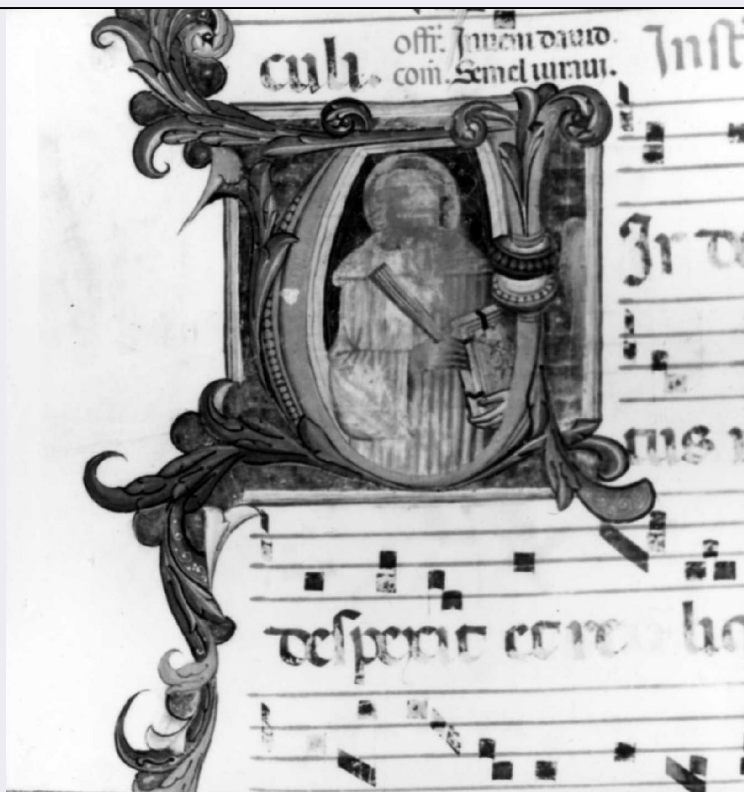 culi. offr. Inueni dauid.
com. Semel iuraui. Inst
Ir de
cus
despexit et re lic